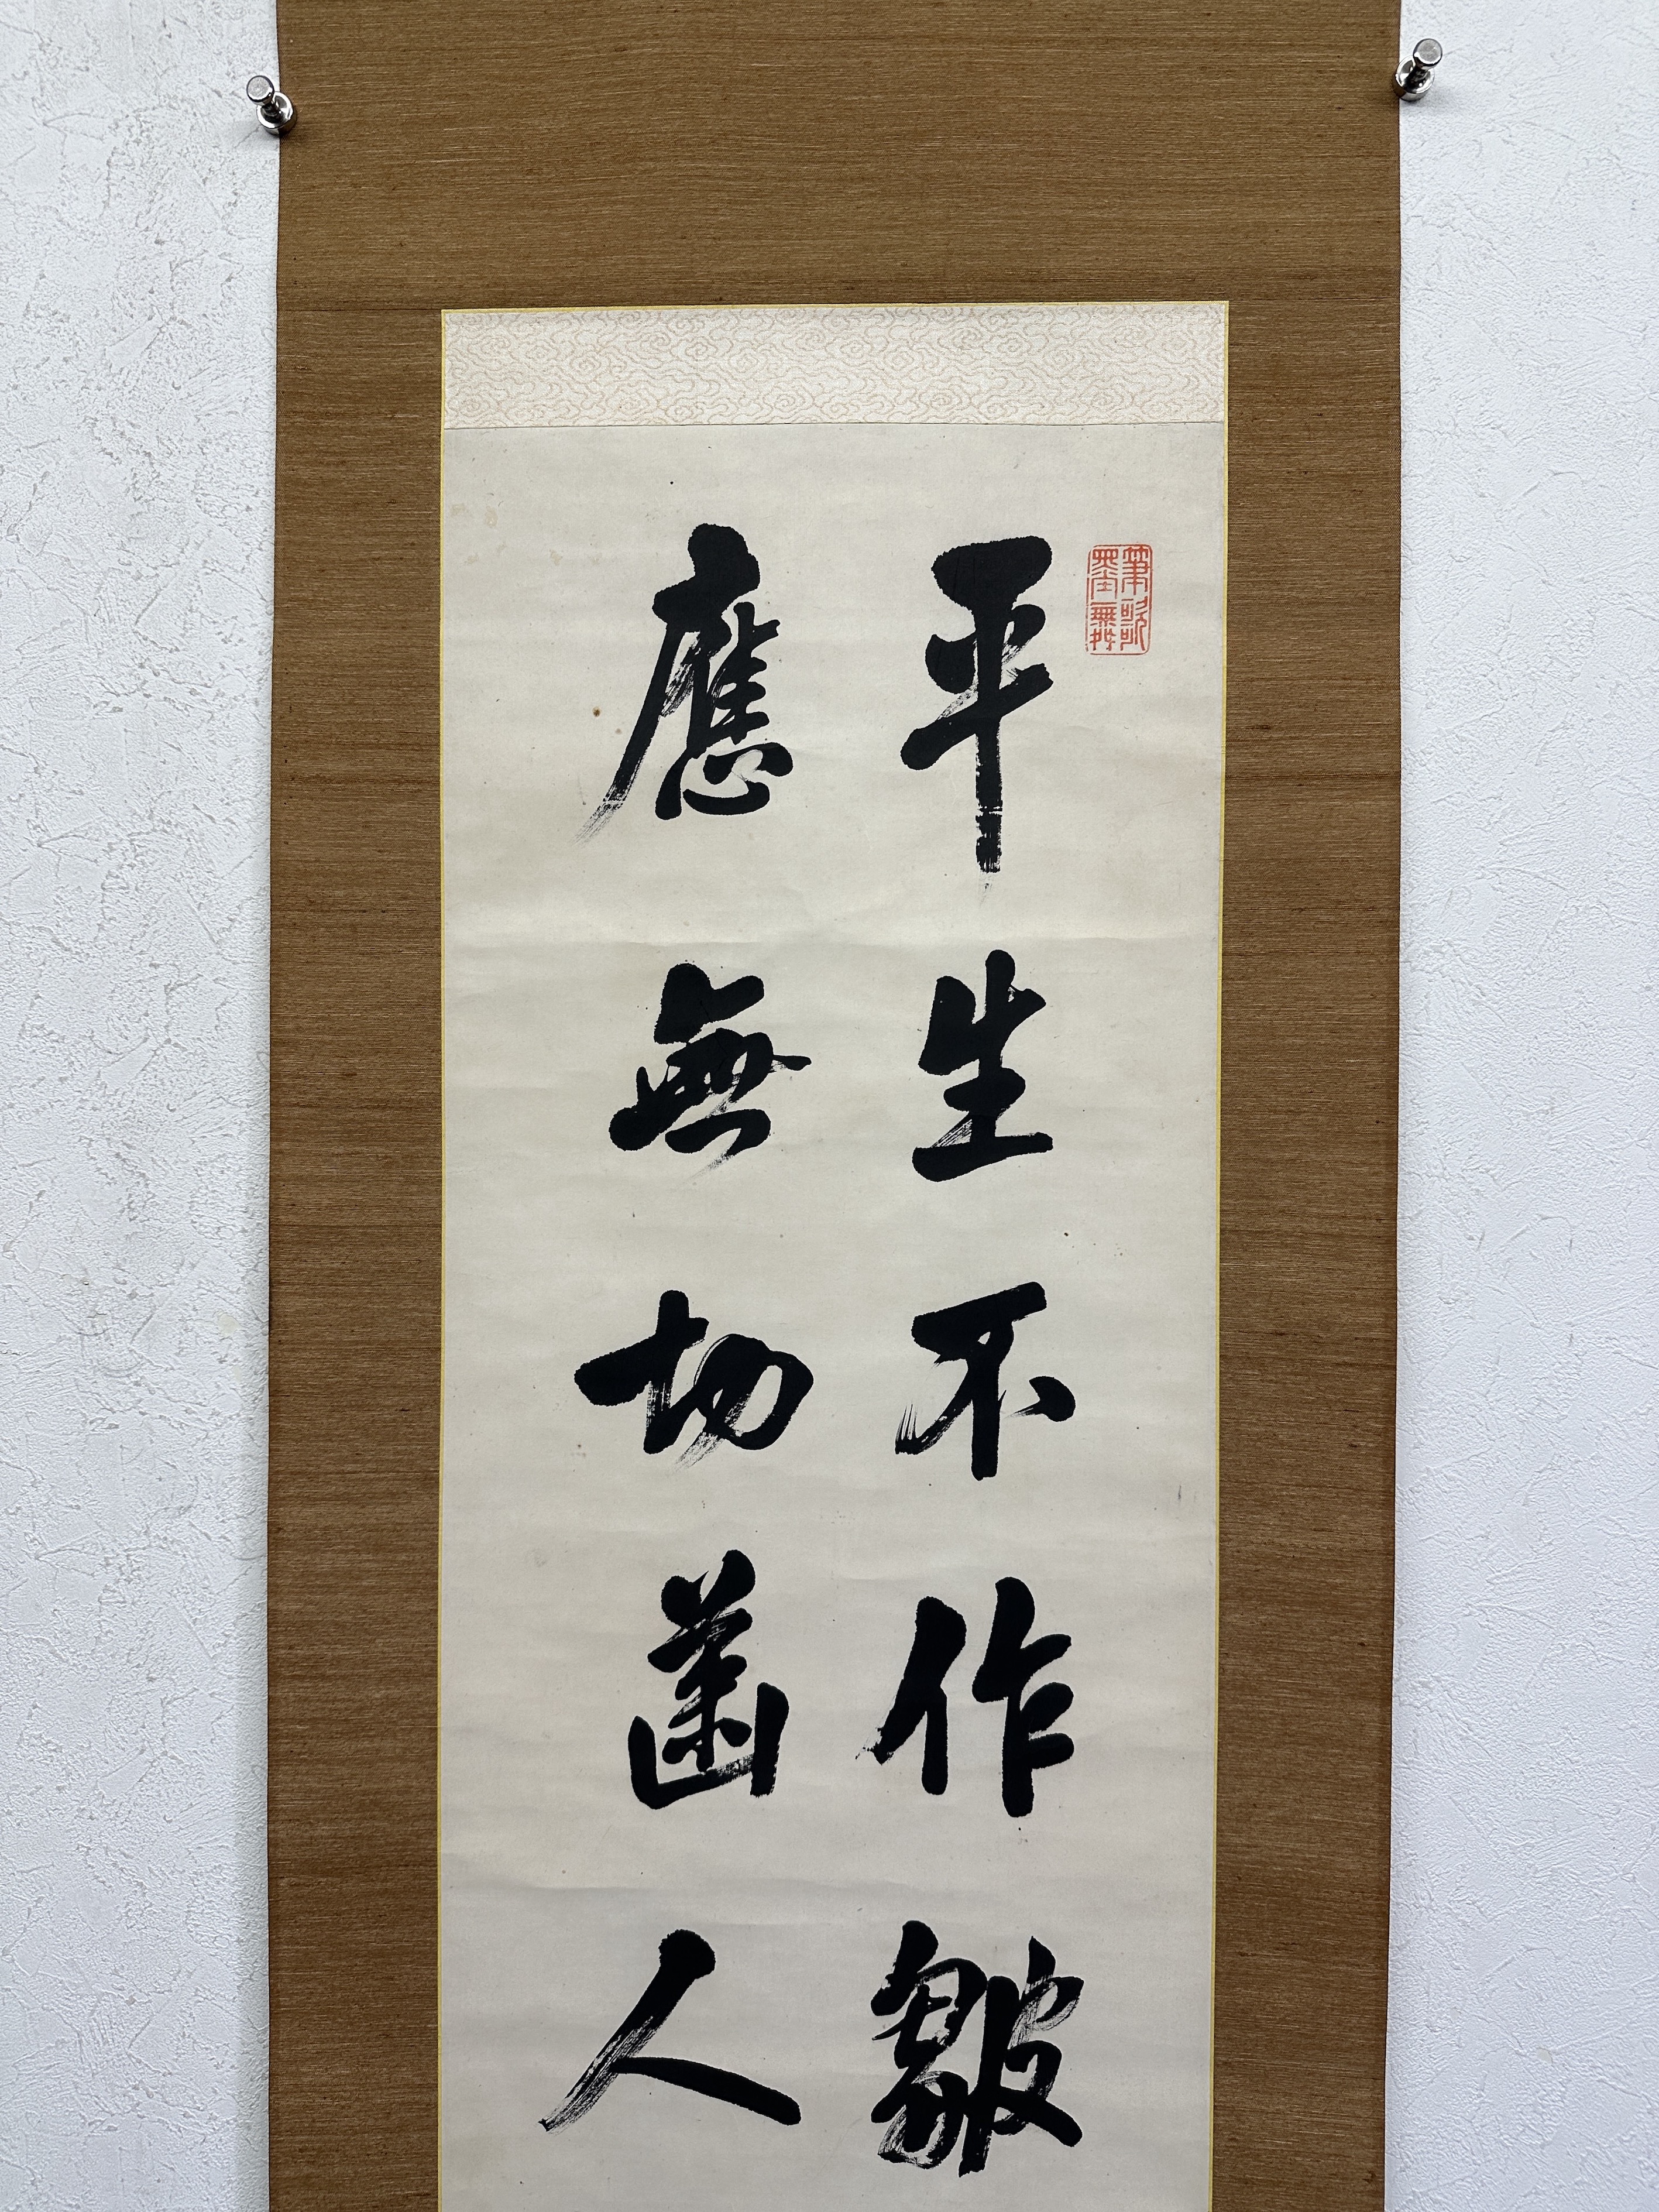 平生不作皺
應無切齒人